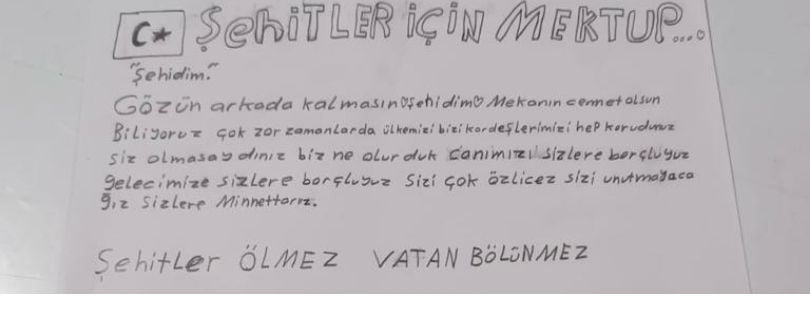 ŞehiTLER içiN MEKTUP...
"Şehidim."
Gözün arkada kalmasın♡şehidim♡ Mekanın cennet olsun
Biliyoruz çok zor zamanlarda ülkemizi bizi kardeşlerimizi hep korudunuz
siz olmasaydınız biz ne olurduk canımızı sizlere borçluyuz
gelecimize sizlere borçluyuz Sizi çok özlicez sizi unutmayaca
ğız Sizlere Minnettarız.
Şehitler ÖLMEZ VATAN BÖLÜNMEZ